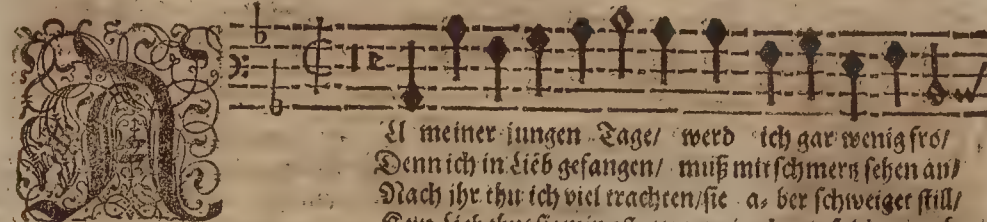 ALl meiner jungen Tage/ werd ich gar wenig fro/
Denn ich in Lieb gefangen/ muß mit ſchmertz ſehen an/
Nach ihr thu ich viel trachten/ſie a- ber ſchweiget ſtill/